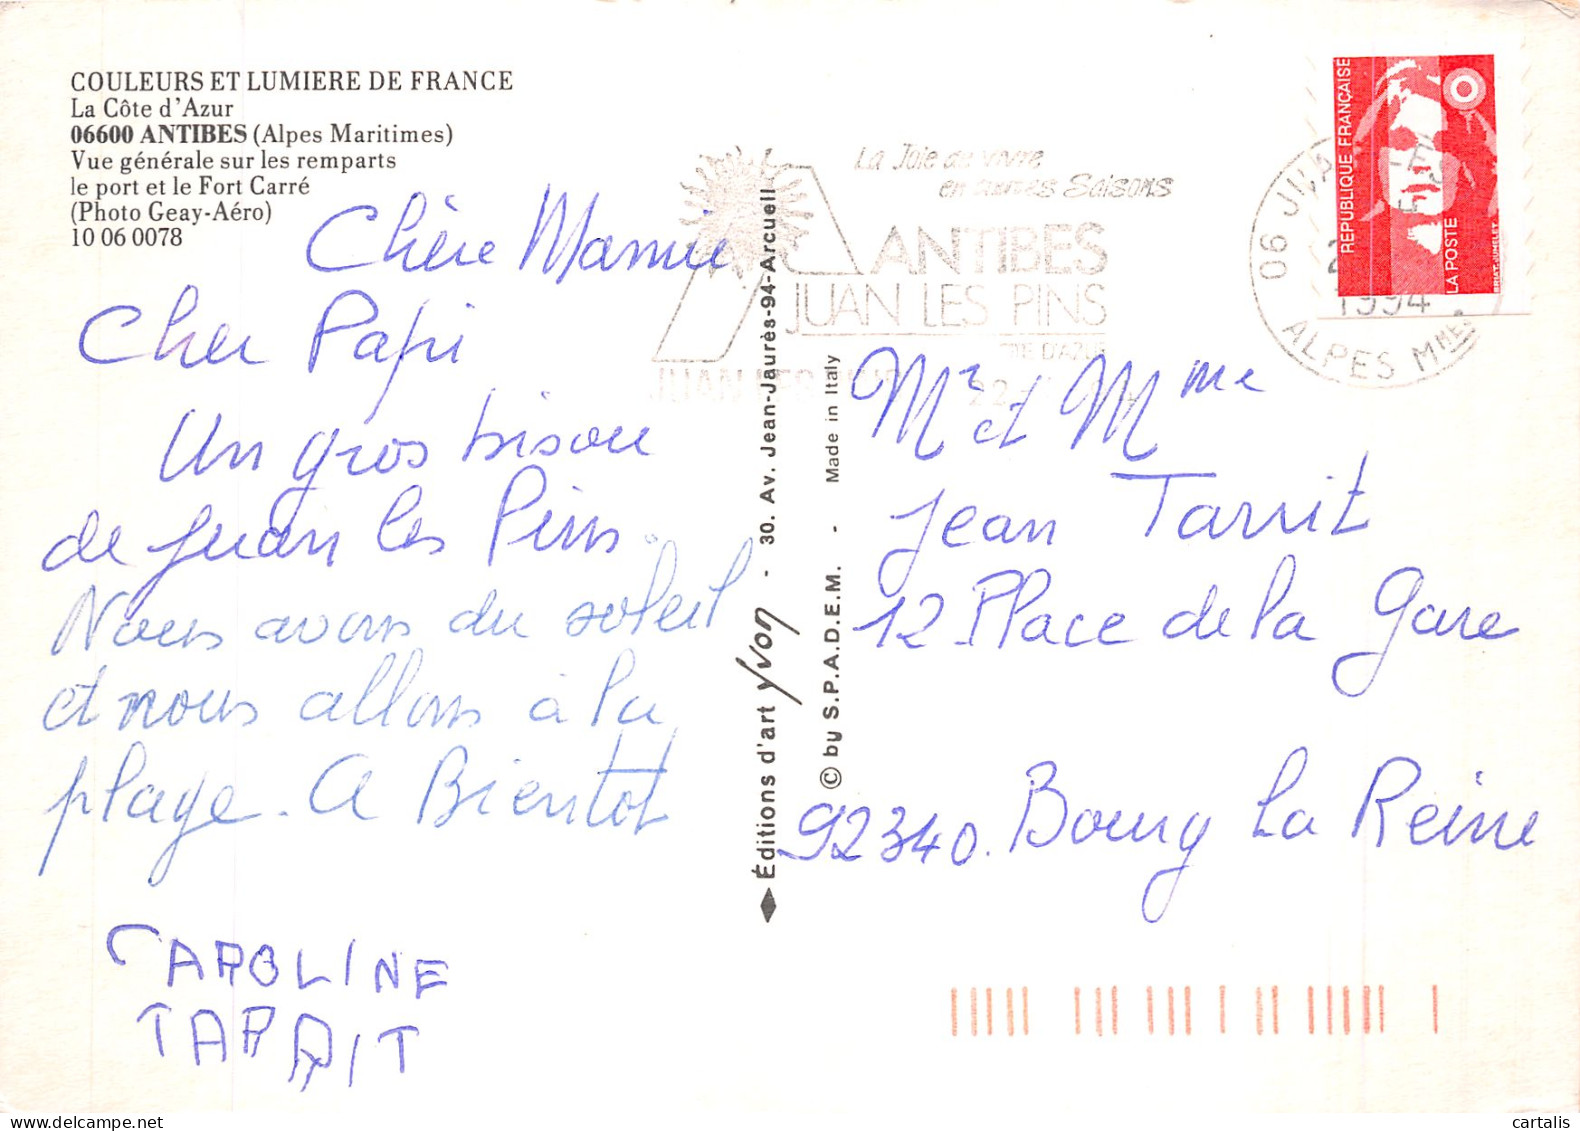 COULEURS ET LUMIERE DE FRANCE
La Côte d'Azur
06600 ANTIBES (Alpes Maritimes)
Vue générale sur les remparts
le port et le Fort Carré
(Photo Geay-Aéro)
10 06 0078
Chère Mamie
Cher Papi
Un gros bisou
de Juan les Pins.
Nous avons du soleil
et nous allons à la
plage. A Bientot
CAROLINE
TARRIT
Éditions d'art Yvon - 30. Av. Jean-Jaurès-94-Arcueil
© by S.P.A.D.E.M. - Made in Italy
La Joie de vivre
en autres Saisons
ANTIBES
JUAN LES PINS
D'AZUR
JUAN LES
22
REPUBLIQUE FRANÇAISE
LA POSTE
BRIAT-JUMELET
06 JUA
1994
ALPES MMES
Mr et Mme
Jean Tarrit
12 Place de la Gare
92340. Bourg La Reine
cartalis